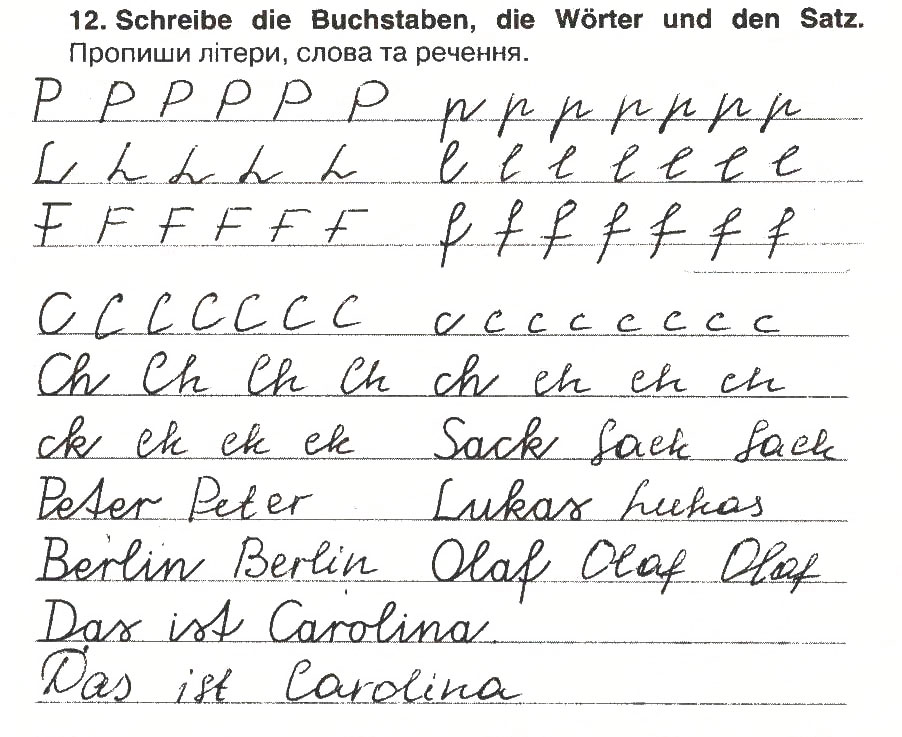 12. Schreibe die Buchstaben, die Wörter und den Satz.
Пропиши літери, слова та речення.
P P P P P P p p p p p p p
L L L L L L l l l l l l l
F F F F F F f f f f f f f
C C C C C C C c c c c c c c
Ch Ch Ch Ch ch ch ch ch
ck ck ck ck Sack Sack Sack
Peter Peter Lukas Lukas
Berlin Berlin Olaf Olaf Olaf
Das ist Carolina.
Das ist Carolina